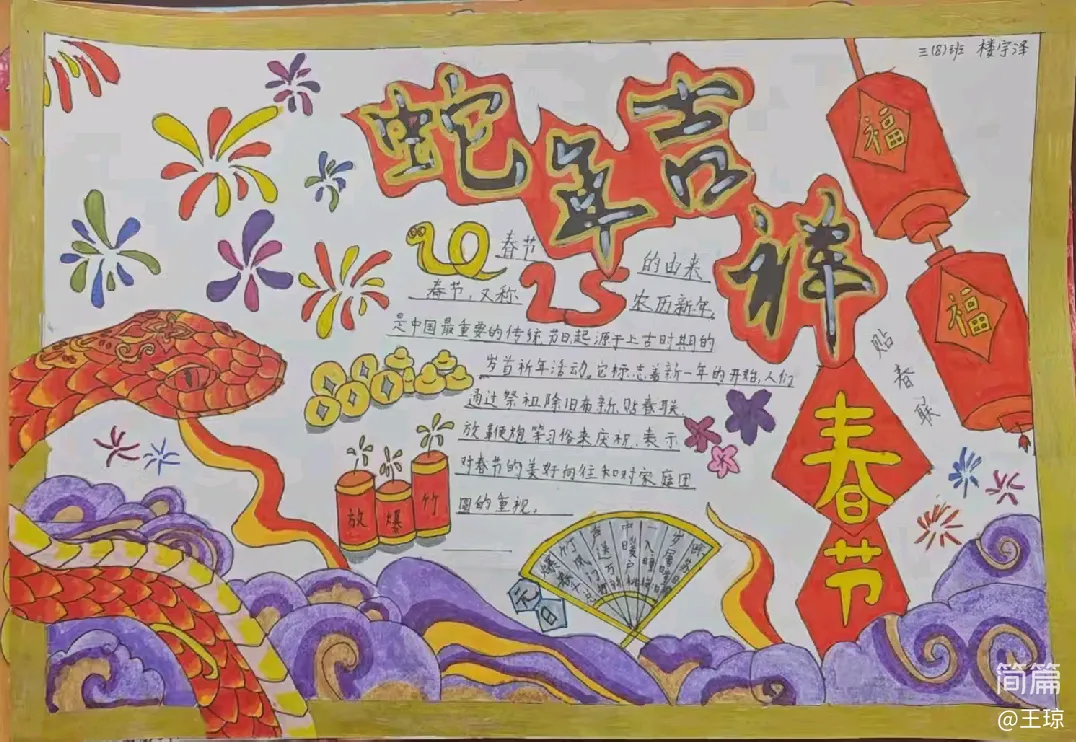 三(8)班 楼宇泽
蛇年吉祥
福
福
春节 的由来
2025
春节,又称 农历新年,
是中国最重要的传统节日,起源于上古时期的
岁首祈年活动。它标志着新一年的开始,人们
通过祭祖、除旧布新、贴春联、
放鞭炮等习俗来庆祝,表示
对春节的美好向往和对家庭团
圆的重视。
贴春联
春节
放爆竹
元日
简篇
@王琼